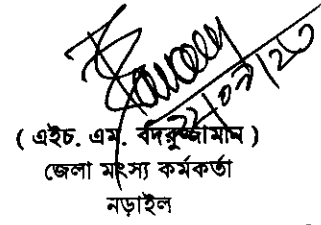 ২২/০৭/২০
( এইচ. এম. বদরুজ্জামান )
জেলা মৎস্য কর্মকর্তা
নড়াইল